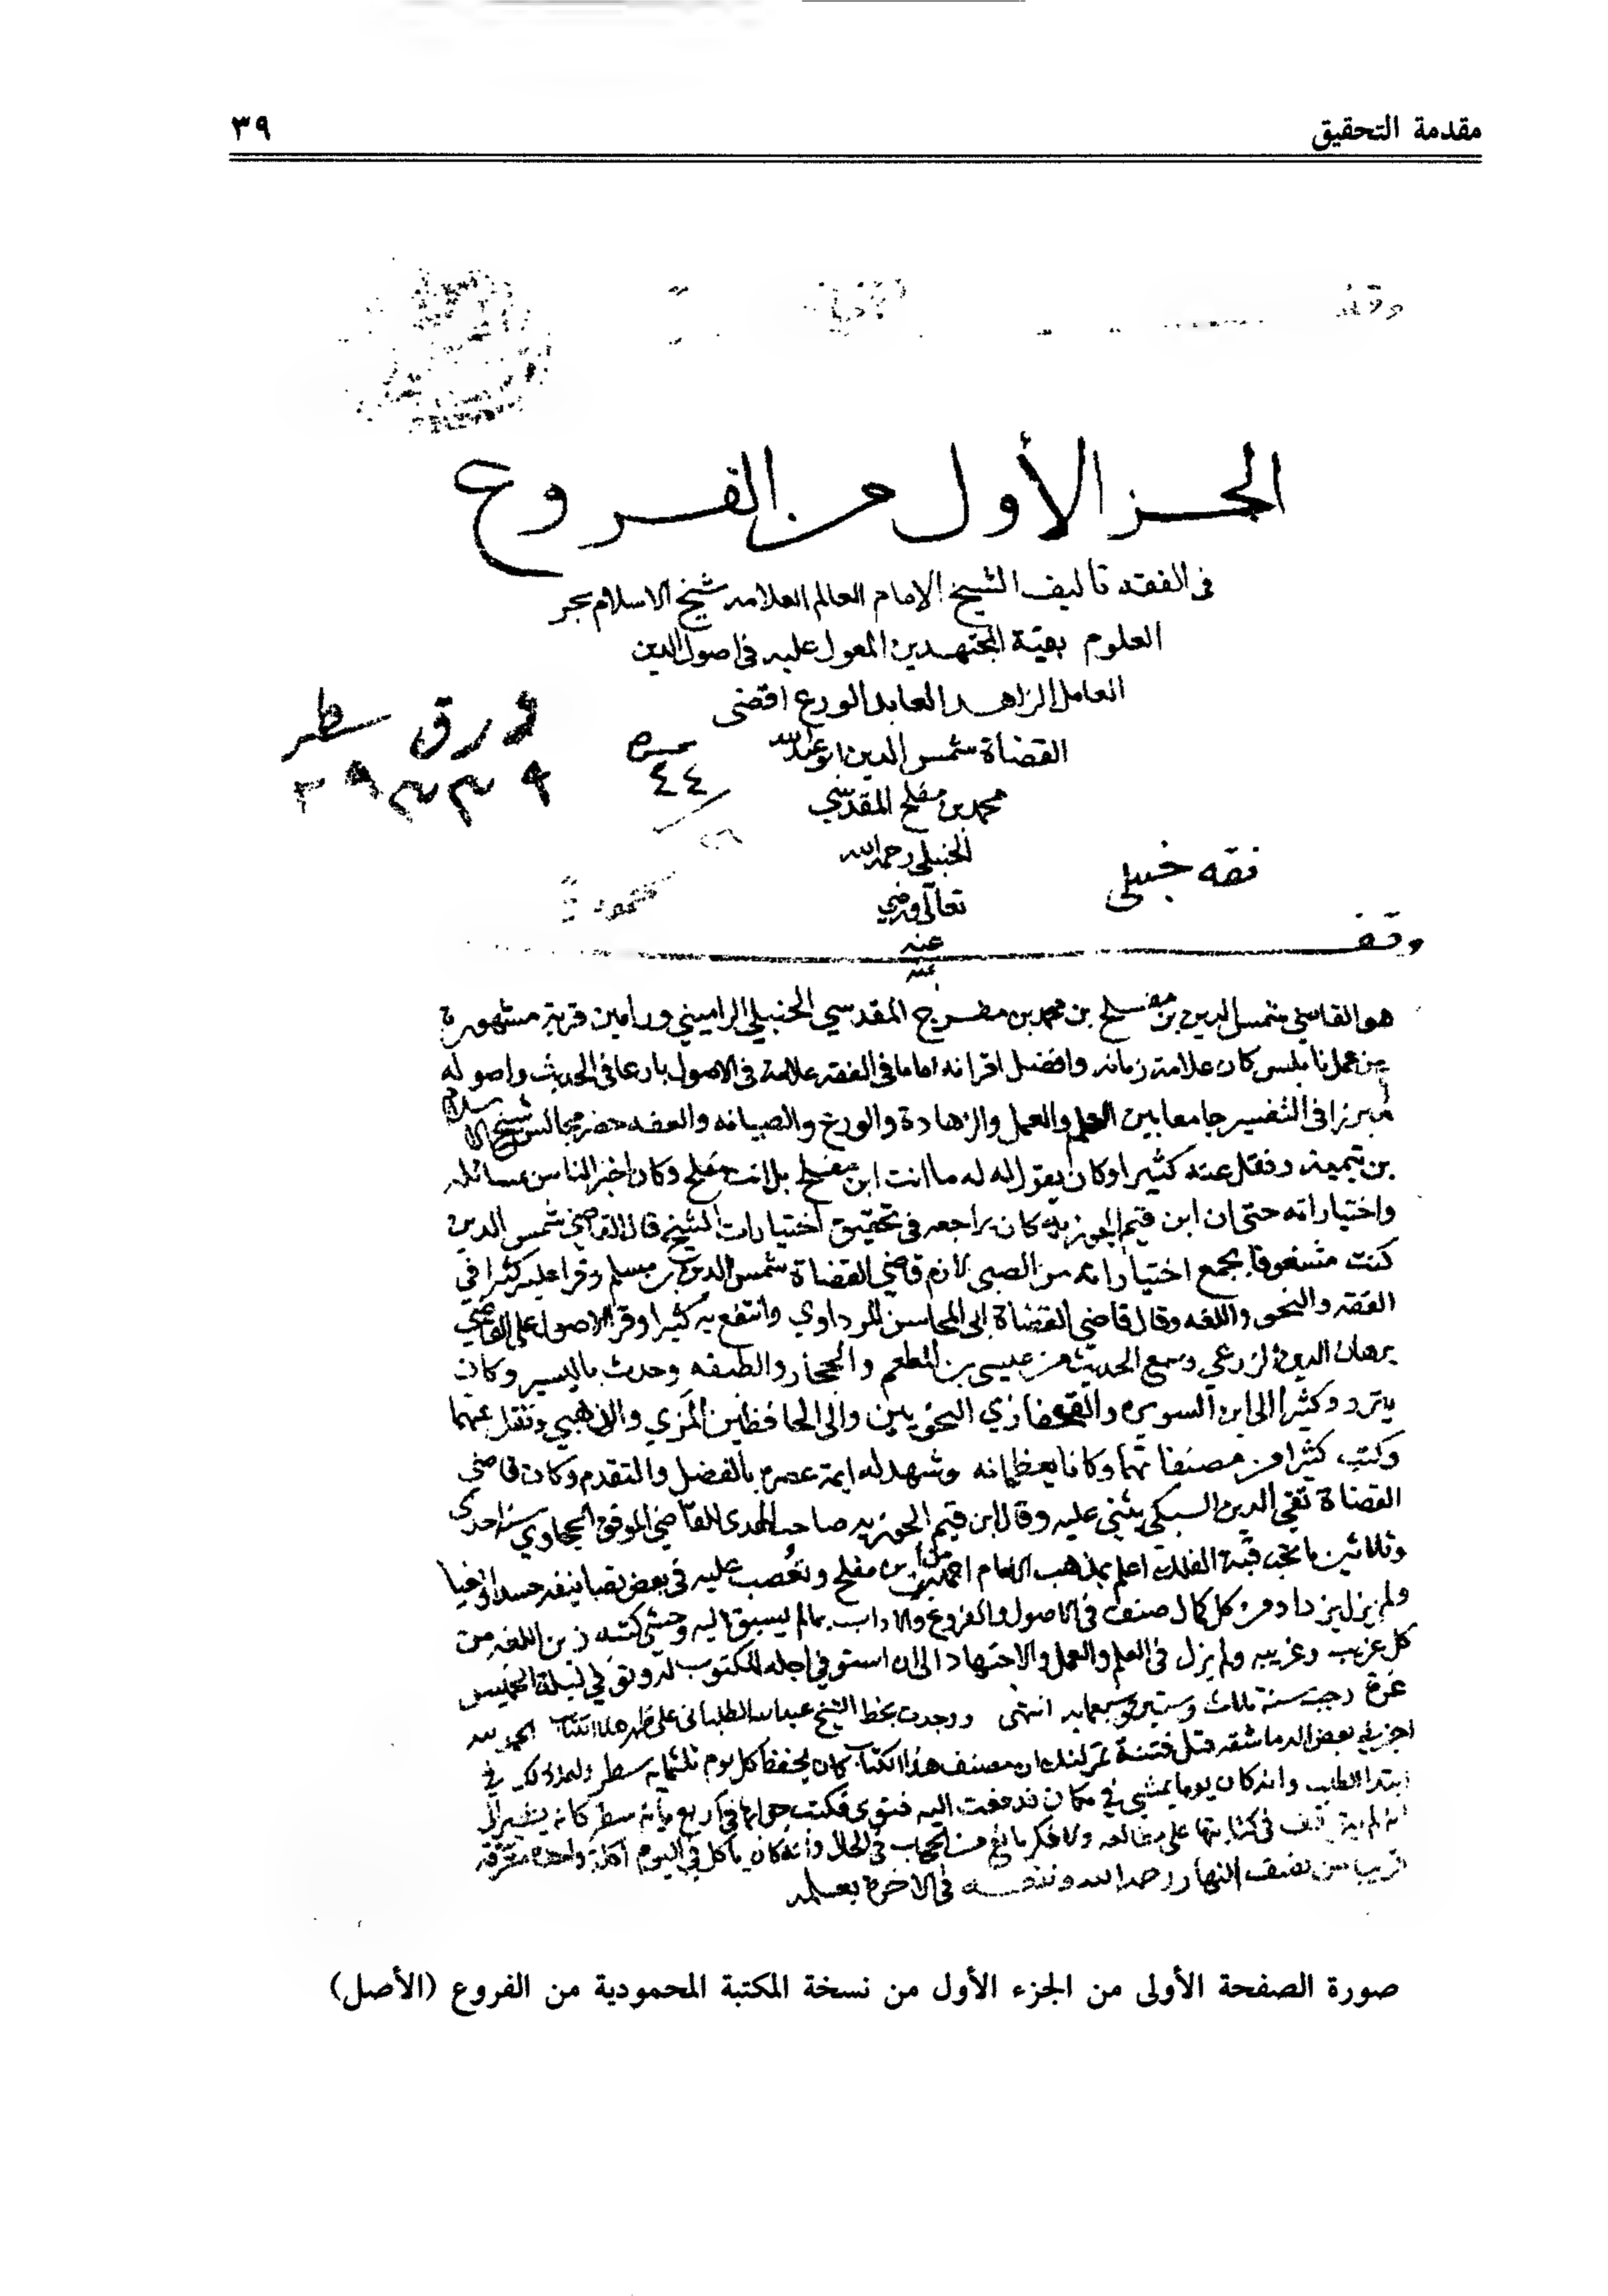 مقدمة التحقيق ٣٩
وقف
الجز الأول من الفروع
في الفقه تأليف الشيخ الامام العالم العلامه شيخ الاسلام بحر
العلوم بقية المجتهدين المعول عليه في اصول الدين
العامل الزاهد العابد الورع اقضى
القضاة شمس الدين ابو عبد الله
محمد بن مفلح المقدسي
الحنبلي رحمه الله
تعالى ورضي
عنه
ورق سطر
٤٤
فقه حنبلي
وقف
هو القاضي شمس الدين بن مفلح بن محمد بن مفرج المقدسي الحنبلي الراميني ورامين قرية مشهورة
من عمل نابلس كان علامة زمانه وافضل اقرانه اماما في الفقه علامة في الاصول بارعا في الحديث واصوله
مبرزا في التفسير جامعا بين العلم والعمل والزهادة والورع والصيانه والعفه حضر مجالس شيخ الاسلام
بن تيمية ونقل عنه كثيرا وكان يقول له ما انت ابن مفلح بل انت مفلح وكان اخبر الناس بمسائله
واختياراته حتى ان ابن قيم الجوزيه كان يراجعه في تحقيق اختيارات الشيخ قال القاضي شمس الدين
كنت مشغوفا بجمع اختياراته من الصبى لازم قاضي القضاة شمس الدين بن مسلم وقرا عليه كثيرا في
الفقه والنحو واللغه وقال قاضي القضاة ابي المحاسن المرداوي وانتفع به كثيرا وقرا الاصول على القاضي
برهان الدين الزرعي وسمع الحديث من عيسى بن المطعم والحجار والطبقه وحدث باليسير وكان
يتردد كثيرا الى ابن السويره والقحفازي النحويين والى الحافظين المزي والذهبي ونقل عنهما
وكتب كثيرا من مصنفاتهما وكانا يعظمانه وشهد له ايمة عصره بالفضل والتقدم وكان قاضي
القضاة تقي الدين السبكي يثني عليه وقال ابن قيم الجوزيه صاحب الهدى للقاضي الموفق الحجاوي سنه احدى
وثلاثين ما تحت قبة الفلك اعلم بمذهب الامام احمد من بن مفلح وتعصب عليه في بعض تصانيفه حسدا
ولم يزل يزداد من كل كمال صنف في الاصول والفروع والاداب بمالم يسبق اليه وحشى كتبه من اللغه من
كل عزيب وغريبه ولم يزل في العلم والعمل والاجتهاد الى ان استوفى اجله المكتوب له وتوفي ليلة الخميس
غرة رجب سنة ثلاث وستين وسبعمايه انتهى ووجدت بخط الشيخ على ظهر هذا الكتاب الحمد لله
اخبرني بعض الدماشقه قبل فتنة تمرلنك ان مصنف هذا الكتاب كان يحفظ كل يوم ثلثمايه سطر وذلك في
ابتدا الطلب وانه كان يوما يمشي في مكان فدفعت اليه فتوى فكتب جوابها في اربع مايه سطر كانه يشير الى
انه لم يتوقف في كتابتها على مطالعه ولا فكر مانع من الجواب في الحال وانه كان ياكل في اليوم اكله واحده متفرقه
قريبا من نصف النهار رحمه الله ونفعه في الاخره بعلمه
صورة الصفحة الأولى من الجزء الأول من نسخة المكتبة المحمودية من الفروع (الأصل)